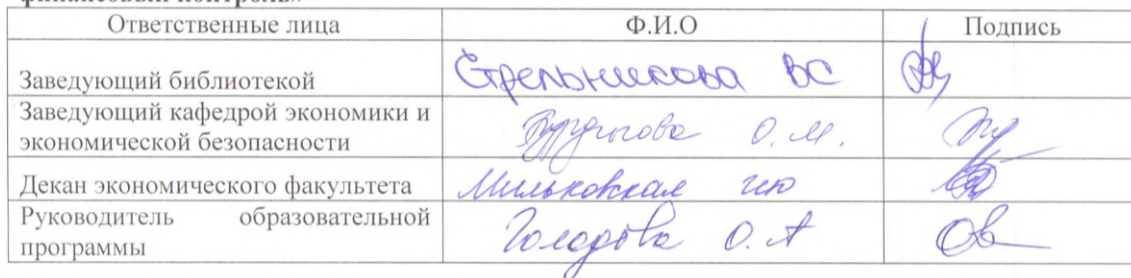 Ответственные лица Ф.И.О Подпись
Заведующий библиотекой Стрельникова ВС
Заведующий кафедрой экономики и
экономической безопасности О.М.
Декан экономического факультета Мильковская ию
Руководитель образовательной
программы О.А